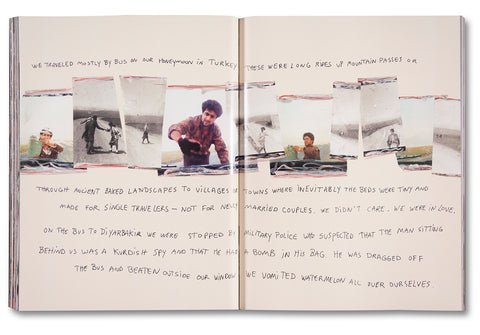 WE TRAVELED MOSTLY BY BUS ON OUR HONEYMOON IN TURKEY THESE WERE LONG RIDES UP MOUNTAIN PASSES OR
THROUGH ANCIENT BAKED LANDSCAPES TO VILLAGES OR TOWNS WHERE INEVITABLY THE BEDS WERE TINY AND
MADE FOR SINGLE TRAVELERS — NOT FOR NEWLY MARRIED COUPLES. WE DIDN'T CARE. WE WERE IN LOVE.
ON THE BUS TO DIYARBAKIR WE WERE STOPPED BY MILITARY POLICE WHO SUSPECTED THAT THE MAN SITTING
BEHIND US WAS A KURDISH SPY AND THAT HE HAD A BOMB IN HIS BAG. HE WAS DRAGGED OFF
THE BUS AND BEATEN OUTSIDE OUR WINDOW. WE VOMITED WATERMELON ALL OVER OURSELVES.